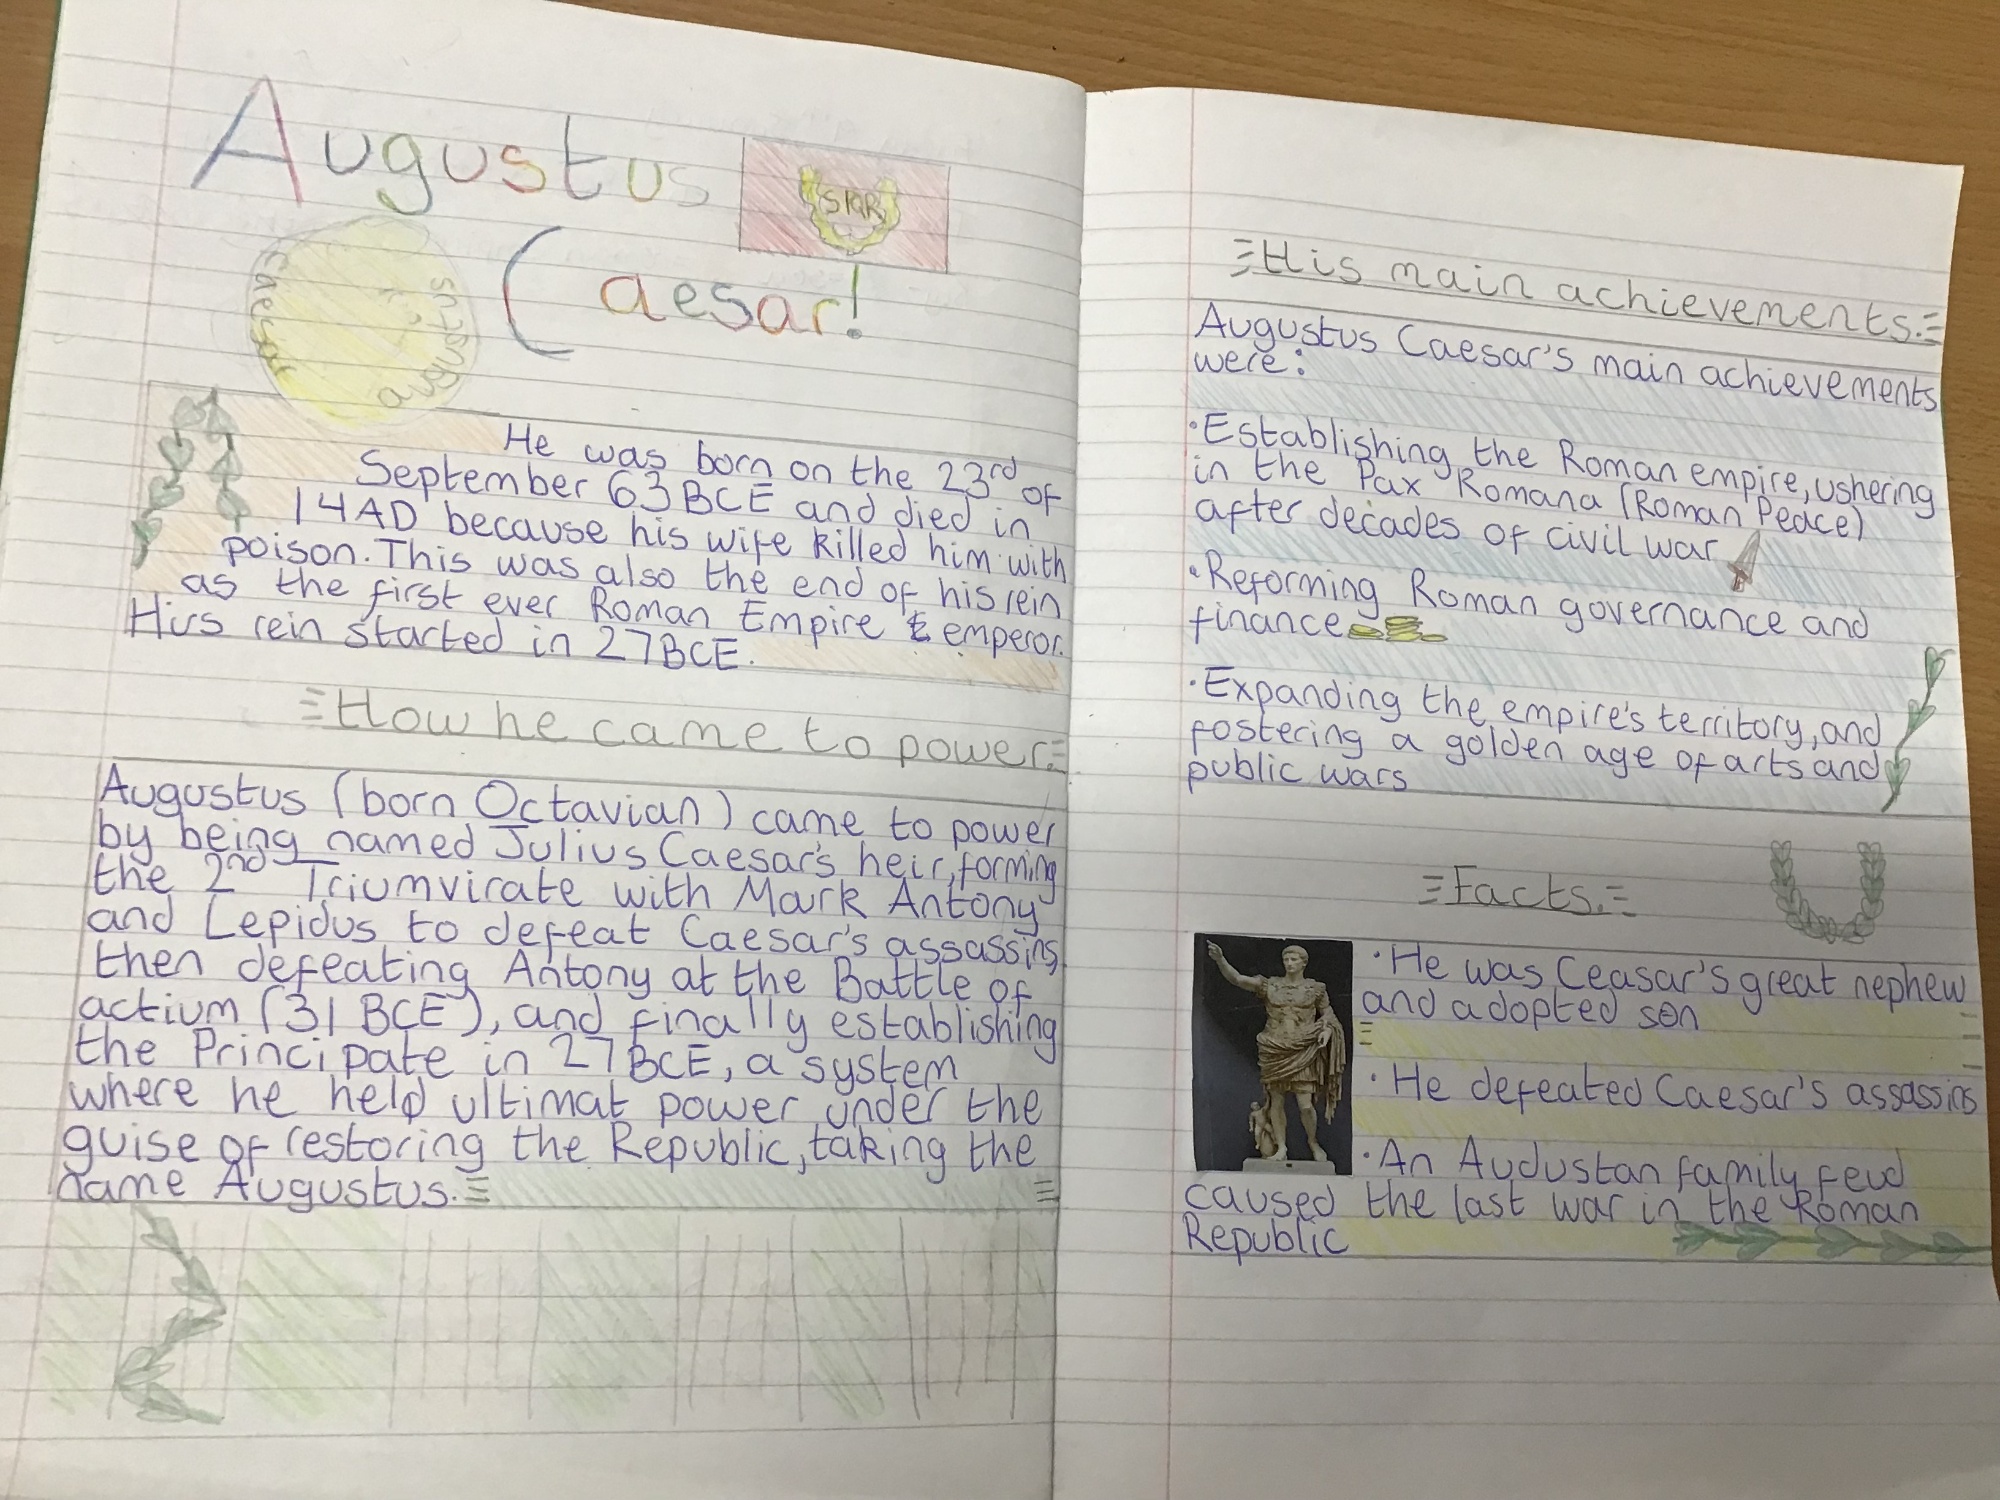 Augustus
SPQR
Caesar!
Caesar
Augustus
He was born on the 23rd of
September 63BCE and died in
14AD because his wife killed him with
poison. This was also the end of his rein
as the first ever Roman Empire emperor.
Hirs rein started in 27BCE.
How he came to power.
Augustus (born Octavian) came to power
by being named Julius Caesar's heir, forming
the 2nd Triumvirate with Mark Antony
and Lepidus to defeat Caesar's assassins,
then defeating Antony at the Battle of
actium (31 BCE), and finally establishing
the Principate in 27BCE, a system
where he held ultimat power under the
guise of restoring the Republic, taking the
name Augustus.
His main achievements.
Augustus Caesar's main achievements
were:
·Establishing the Roman empire, ushering
in the Pax Romana (Roman Peace)
after decades of civil war
·Reforming Roman governance and
finance
·Expanding the empire's territory, and
fostering a golden age of arts and
public wars
Facts.
·He was Ceasar's great nephew
and adopted son
·He defeated Caesar's assassins
·An Audustan family feud
caused the last war in the Roman
Republic